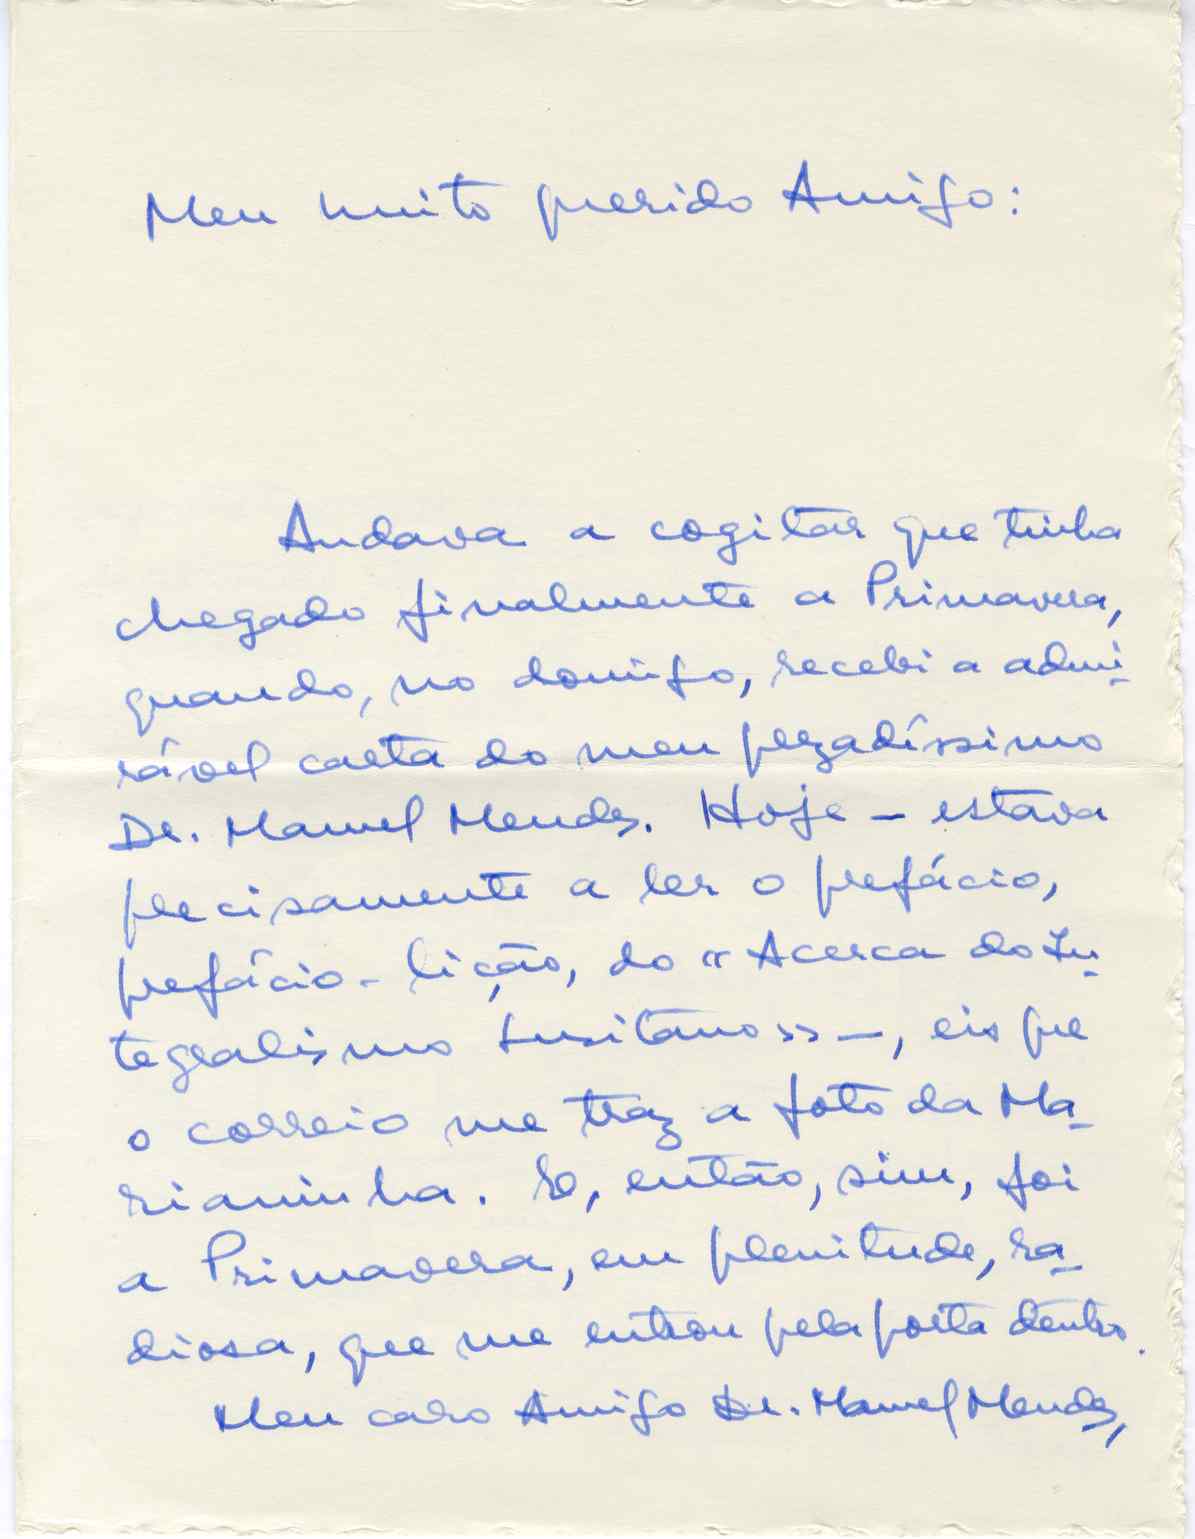 Meu muito querido Amigo:
Andava a cogitar que tinha
chegado finalmente a Primavera,
quando, no domingo, recebi a admi-
rável carta do meu prezadíssimo
Dr. Manuel Mendes. Hoje — estava
precisamente a ler o prefácio,
prefácio-lição, do «Acerca do In-
tegralismo Lusitano» —, eis que
o correio me traz a foto da Ma-
rianinha. E, então, sim, foi
a Primavera, em plenitude, ra-
diosa, que me entrou pela porta dentro.
Meu caro Amigo Dr. Manuel Mendes,